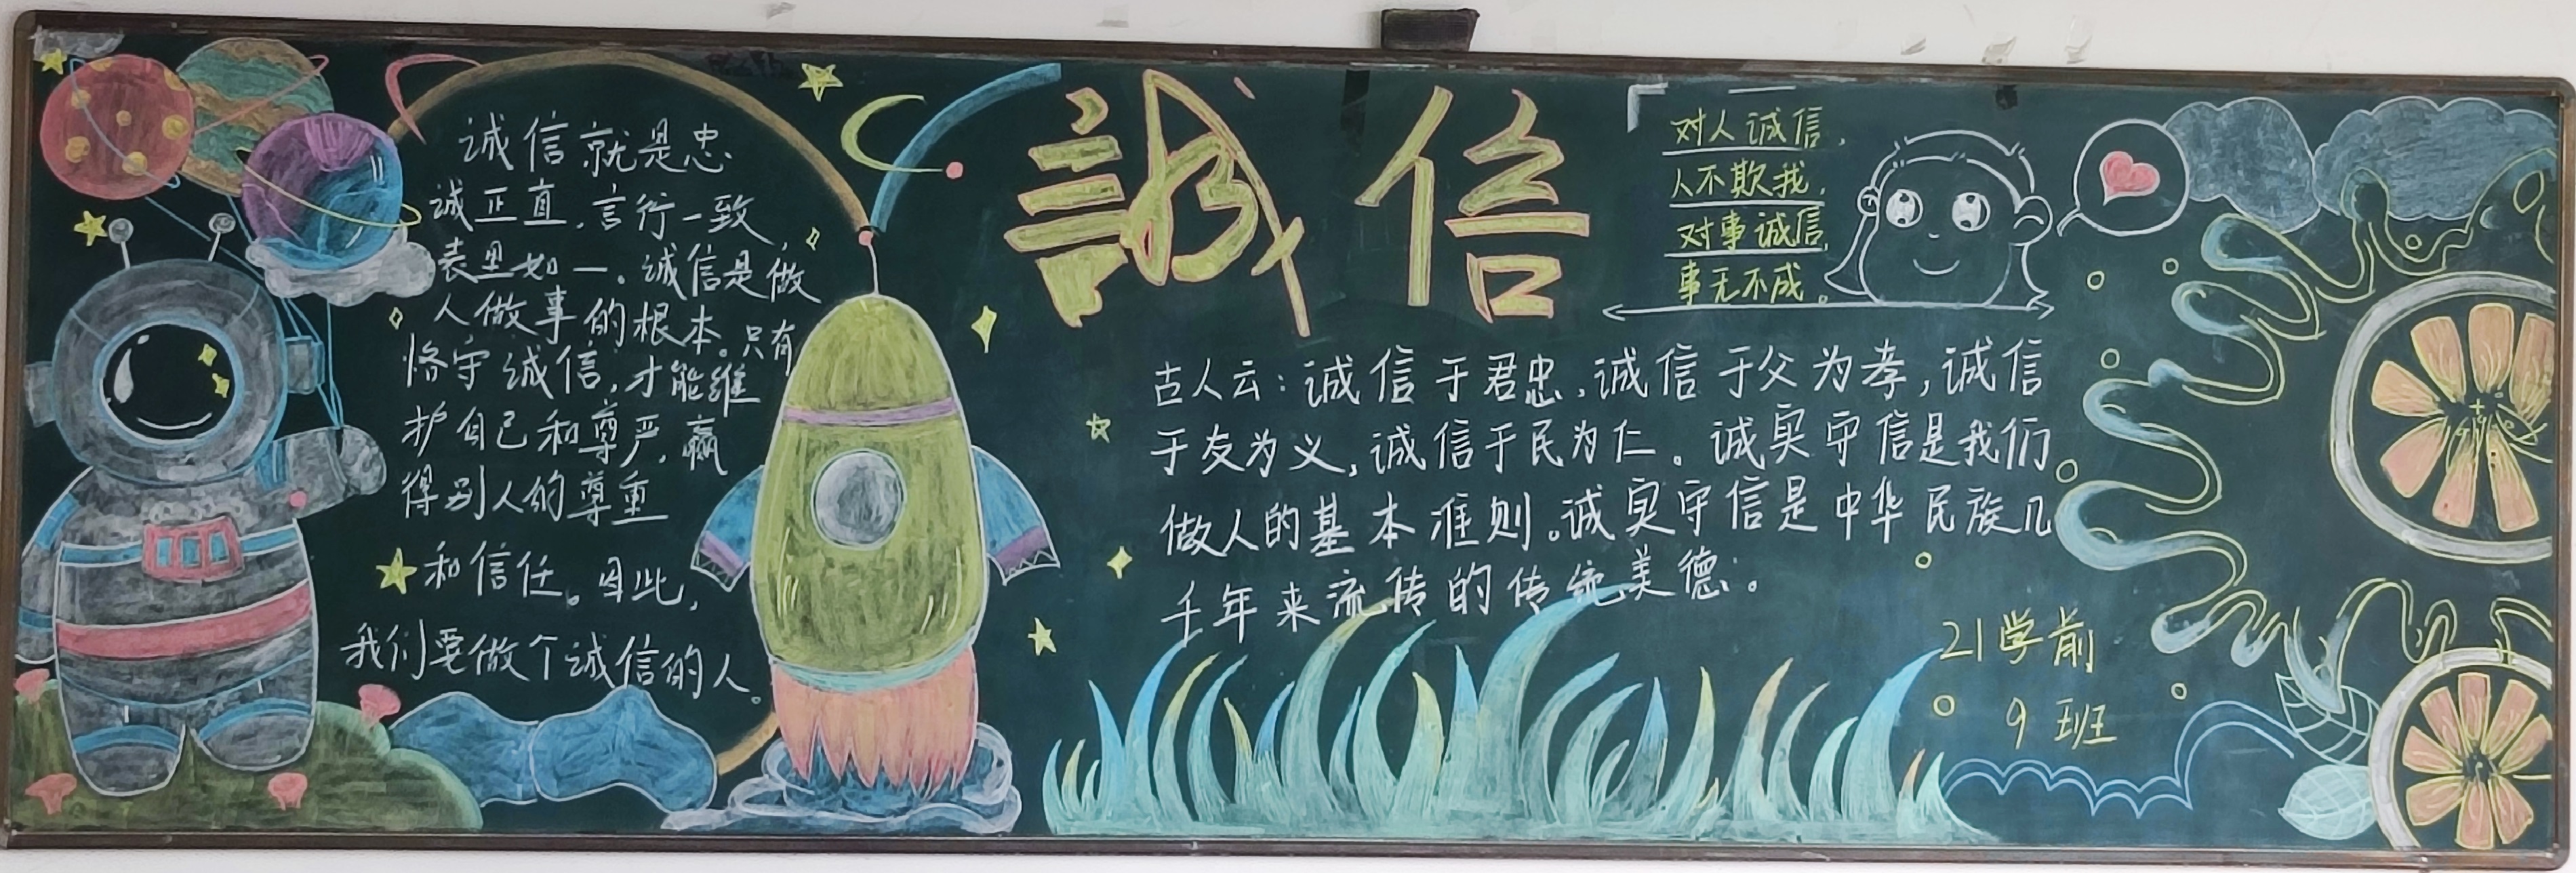 诚信就是忠
诚正直,言行一致,
表里如一。诚信是做
人做事的根本。只有
恪守诚信,才能维
护自己和尊严,赢
得别人的尊重
和信任。因此,
我们要做个诚信的人。
誠信
对人诚信,
人不欺我,
对事诚信,
事无不成。
古人云:诚信于君忠,诚信于父为孝,诚信
于友为义,诚信于民为仁。诚实守信是我们
做人的基本准则。诚实守信是中华民族几
千年来流传的传统美德。
21学前
9班